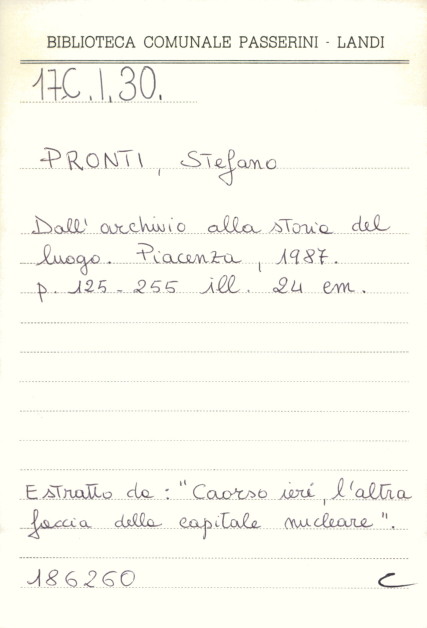 BIBLIOTECA COMUNALE PASSERINI - LANDI
17C.I.30.
PRONTI, Stefano
Dall' archivio alla storia del
luogo. Piacenza, 1987.
p. 125-255 ill. 24 cm.
Estratto da: "Caorso ieri, l'altra
faccia della capitale nucleare".
186260 C